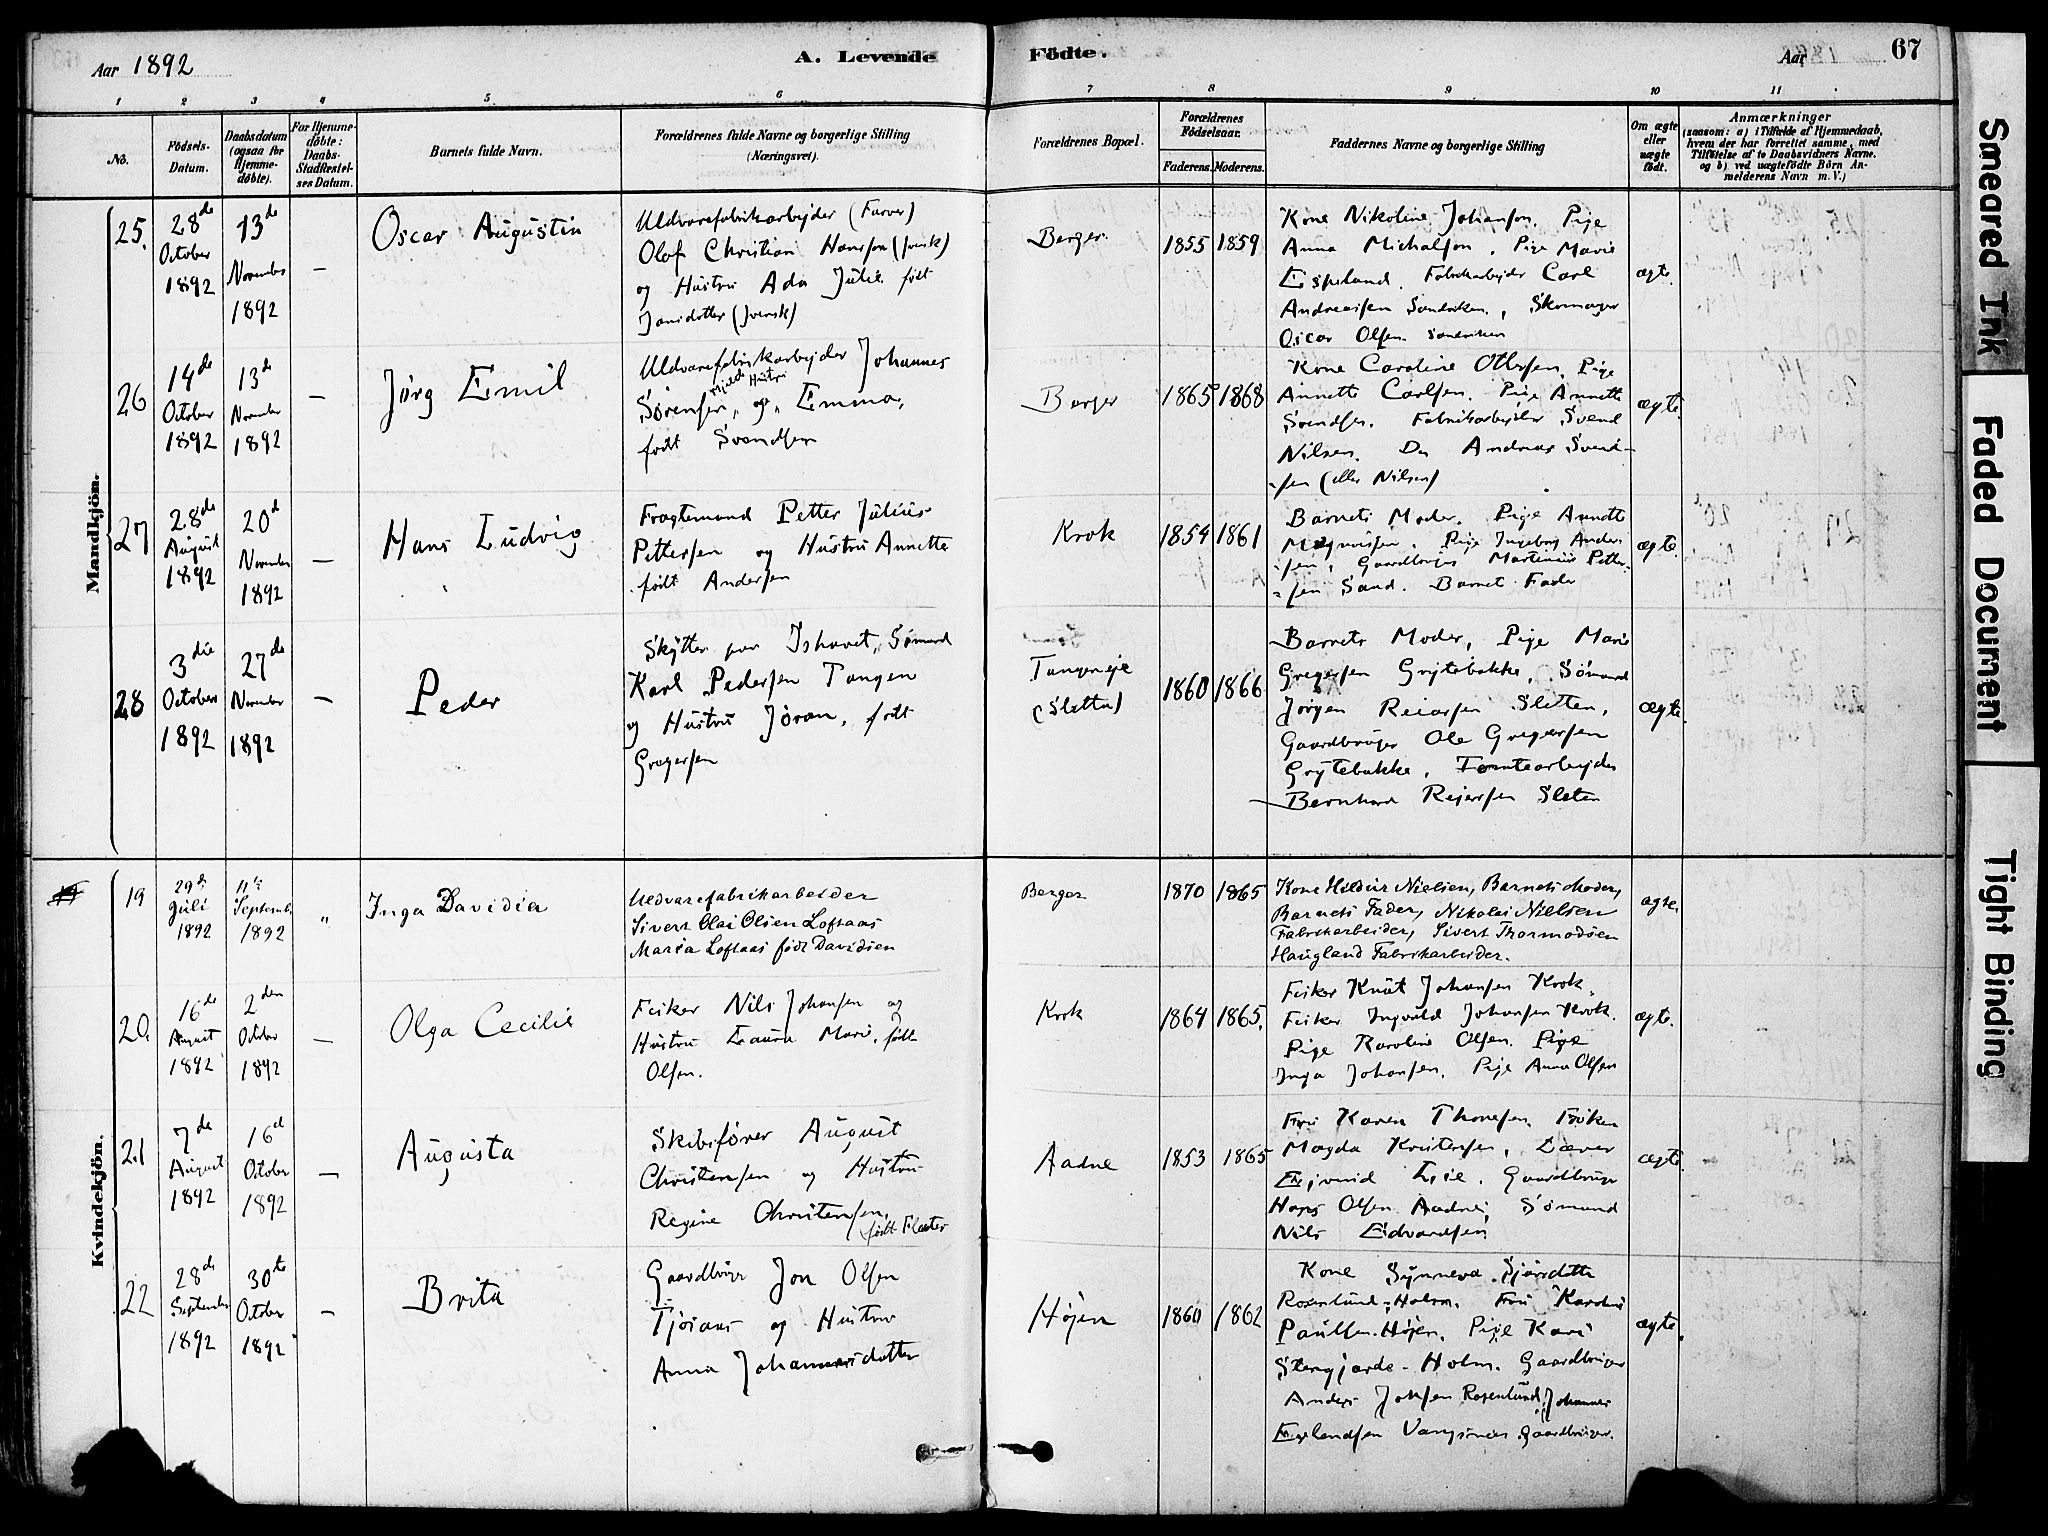 Aar 1892
A. Levende Födte.
Aar
67
1 2 3 4 5 6 7 8 9 10 11
No.
Födsels-
Datum.
Daabsdatum
(ogsaa for
Hjemme-
döbte).
For Hjemme-
döbte:
Daabs-
Stadfæstel-
ses Datum.
Barnets fulde Navn.
Forældrenes fulde Navne og borgerlige Stilling
(Næringsvei).
Forældrenes Bopæl.
Forældrenes
Födselsaar.
Faderens. Moderens.
Faddernes Navne og borgerlige Stilling
Om ægte
eller
uægte
födt.
Anmærkninger
(saasom: a) i Tilfælde af Hjemmedaab,
hvem der har forrettet samme, med
Tilföielse af to Daabsvidners Navne.
og b) ved uægtefödte Börn An-
melderens Navn m. V.)
Mandkjön.
25.
28de
October
1892
13de
November
1892
—
Oscar Augustin
Uldvarefabrikarbejder (Farver)
Olaf Christian Hansson (svensk)
og Hustru Ada Julie født
Jansdotter (svensk)
Berger
1855 1859
Kone Nikoline Johanson. Pige
Anna Michalson. Pige Marie
Espeland. Fabrikarbejder Carl
Andreassen Sandviken, Skomager
Oscar Olsen Sandviken
ægte.
26
14de
October
1892
13de
November
1892
—
Jörg Emil
Uldvarefabrikarbejder Johannes
Sørensen og Hustru Emma,
født Svendsen
Berger
1865 1868
Kone Caroline Ottersen. Pige
Annette Carlsen. Pige Annette
Svendsen. Fabrikarbejder Svend
Nilsen. Do Andreas Svend-
sen (eller Nilsen)
ægte.
27
28de
August
1892
20d
November
1892
—
Hans Ludvig
Fragtemand Petter Julius
Pettersen og Hustru Annette
født Andersen
Krok
1854 1861
Barnets Moder. Pige Annette
Magnussen. Pige Ingeborg Ander-
sen, Gaardbruger Martinius Petter-
sen Sand. Barnet Fader
ægte.
28
3die
October
1892
27de
November
1892
—
Peder
Skytter paa Ishavet, Sømand
Karl Pedersen Tangen
og Hustru Jøran, født
Gregersen
Tangeneje
(Sletta)
1860 1866
Barnets Moder, Pige Marie
Gregersen Grytebakke, Sømand
Jörgen Reiersen Sletten,
Gaardbruger Ole Gregersen
Grytebakke, Tomtearbejder
Bernhard Rejersen Sleten
ægte.
Kvindekjön.
19
29de
Juli
1892
11te
September
1892
"
Inga Davidia
Uldvarefabrikarbeider
Sivert Olai Olsen Loftaas
Maria Loftaas født Davidsen
Berger
1870 1865
Kone Hildur Nielsen, Barnets Moder,
Barnets Fader, Nikolai Nielsen
Fabrikarbeider, Sivert Thormodsen
Haugland Fabrikarbeider.
ægte.
20.
16de
August
1892
2den
October
1892
—
Olga Cecilie
Fisker Nils Johansen og
Hustru Laura Marie, født
Olsen.
Krok
1864 1865.
Fisker Knut Johansen Krok.
Fisker Ingvald Johansen Krok.
Pige Karoline Olsen. Pige
Inga Johansen. Pige Anna Olsen
ægte.
21
7de
August
1892
16d
October
1892
—
Augusta
Skibsfører August
Christensen og Hustru
Regine Christensen,
født Flaeter
Aadne
1853 1865
Fru Karen Thoresen. Frøken
Magda Kristensen, Lærer
Ejvind Lie. Gaardbruger
Hans Olsen Aadne, Sømand
Nils Edvardsen
ægte.
22
28de
September
1892
30te
October
1892
—
Brita
Gaardbruger Jon Olsen
Tjøraas og Hustru
Anna Johannesdatter
Højen
1860 1862
Kone Synneva Sjursdatter
Rosenlund-Holm. Fru Karoline
Paulsen-Højen. Pige Kari
Stengjarde-Holm. Gaardbruger
Anders Johsen Rosenlund, Johannes
Erlendsen Vangsnes Gaardbruger.
ægte.
Smeared Ink
Faded Document
Tight Binding